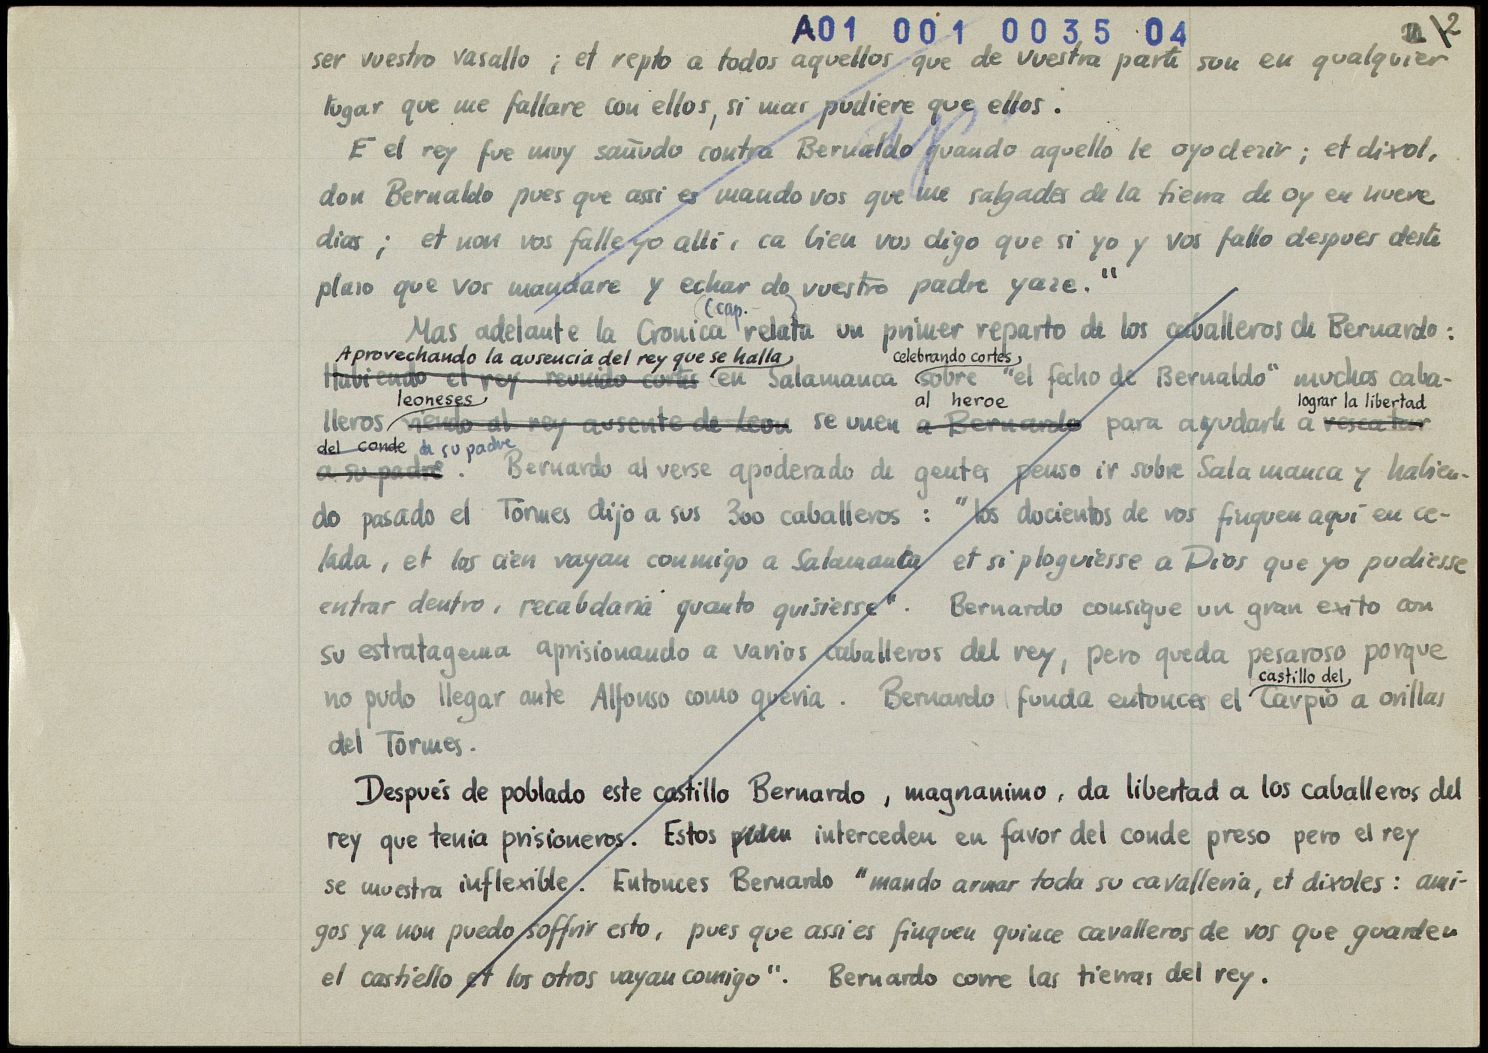 A01 001 0035 04
2
ser vuestro vasallo ; et repto a todos aquellos que de vuestra parte son en qualquier
lugar que me fallare con ellos, si mas pudiere que ellos.
E el rey fue muy sañudo contra Bernaldo quando aquello le oyo dezir ; et dixol,
don Bernaldo pues que assi es mando vos que me salgades de la tierra de oy en nueve
dias ; et non vos falle yo alli, ca bien vos digo que si yo y vos fallo despues deste
plaso que vos mandare y echar do vuestro padre yaze."
(cap. )
Mas adelante la Cronica relata un primer reparto de los caballeros de Bernardo :
Aprovechando la ausencia del rey que se halla celebrando cortes
Habiendo el rey reunido cortes en Salamanca sobre "el fecho de Bernaldo" muchos caba-
leoneses al heroe lograr la libertad
lleros viendo al rey ausente de Leon se unen a Bernardo para ayudarle a rescatar
del conde de su padre
a su padre . Bernardo al verse apoderado de gentes penso ir sobre Salamanca y habien-
do pasado el Tormes dijo a sus 300 caballeros : "los docientos de vos finquen aquí en ce-
lada, et los cien vayan conmigo a Salamanca et si ploguiesse a Dios que yo pudiesse
entrar dentro, recabdaria quanto quisiesse". Bernardo consigue un gran exito con
su estratagema aprisionando a varios caballeros del rey, pero queda pesaroso porque
castillo del
no pudo llegar ante Alfonso como queria . Bernardo funda entonces el Carpio a orillas
del Tormes.
Después de poblado este castillo Bernardo , magnanimo , da libertad a los caballeros del
rey que tenia prisioneros. Estos piden interceden en favor del conde preso pero el rey
se muestra inflexible. Entonces Bernardo "mando armar toda su cavalleria, et dixoles : ami-
gos ya non puedo soffrir esto, pues que assi es finquen quince cavalleros de vos que guarden
el castiello et los otros vayan comigo". Bernardo corre las tierras del rey.